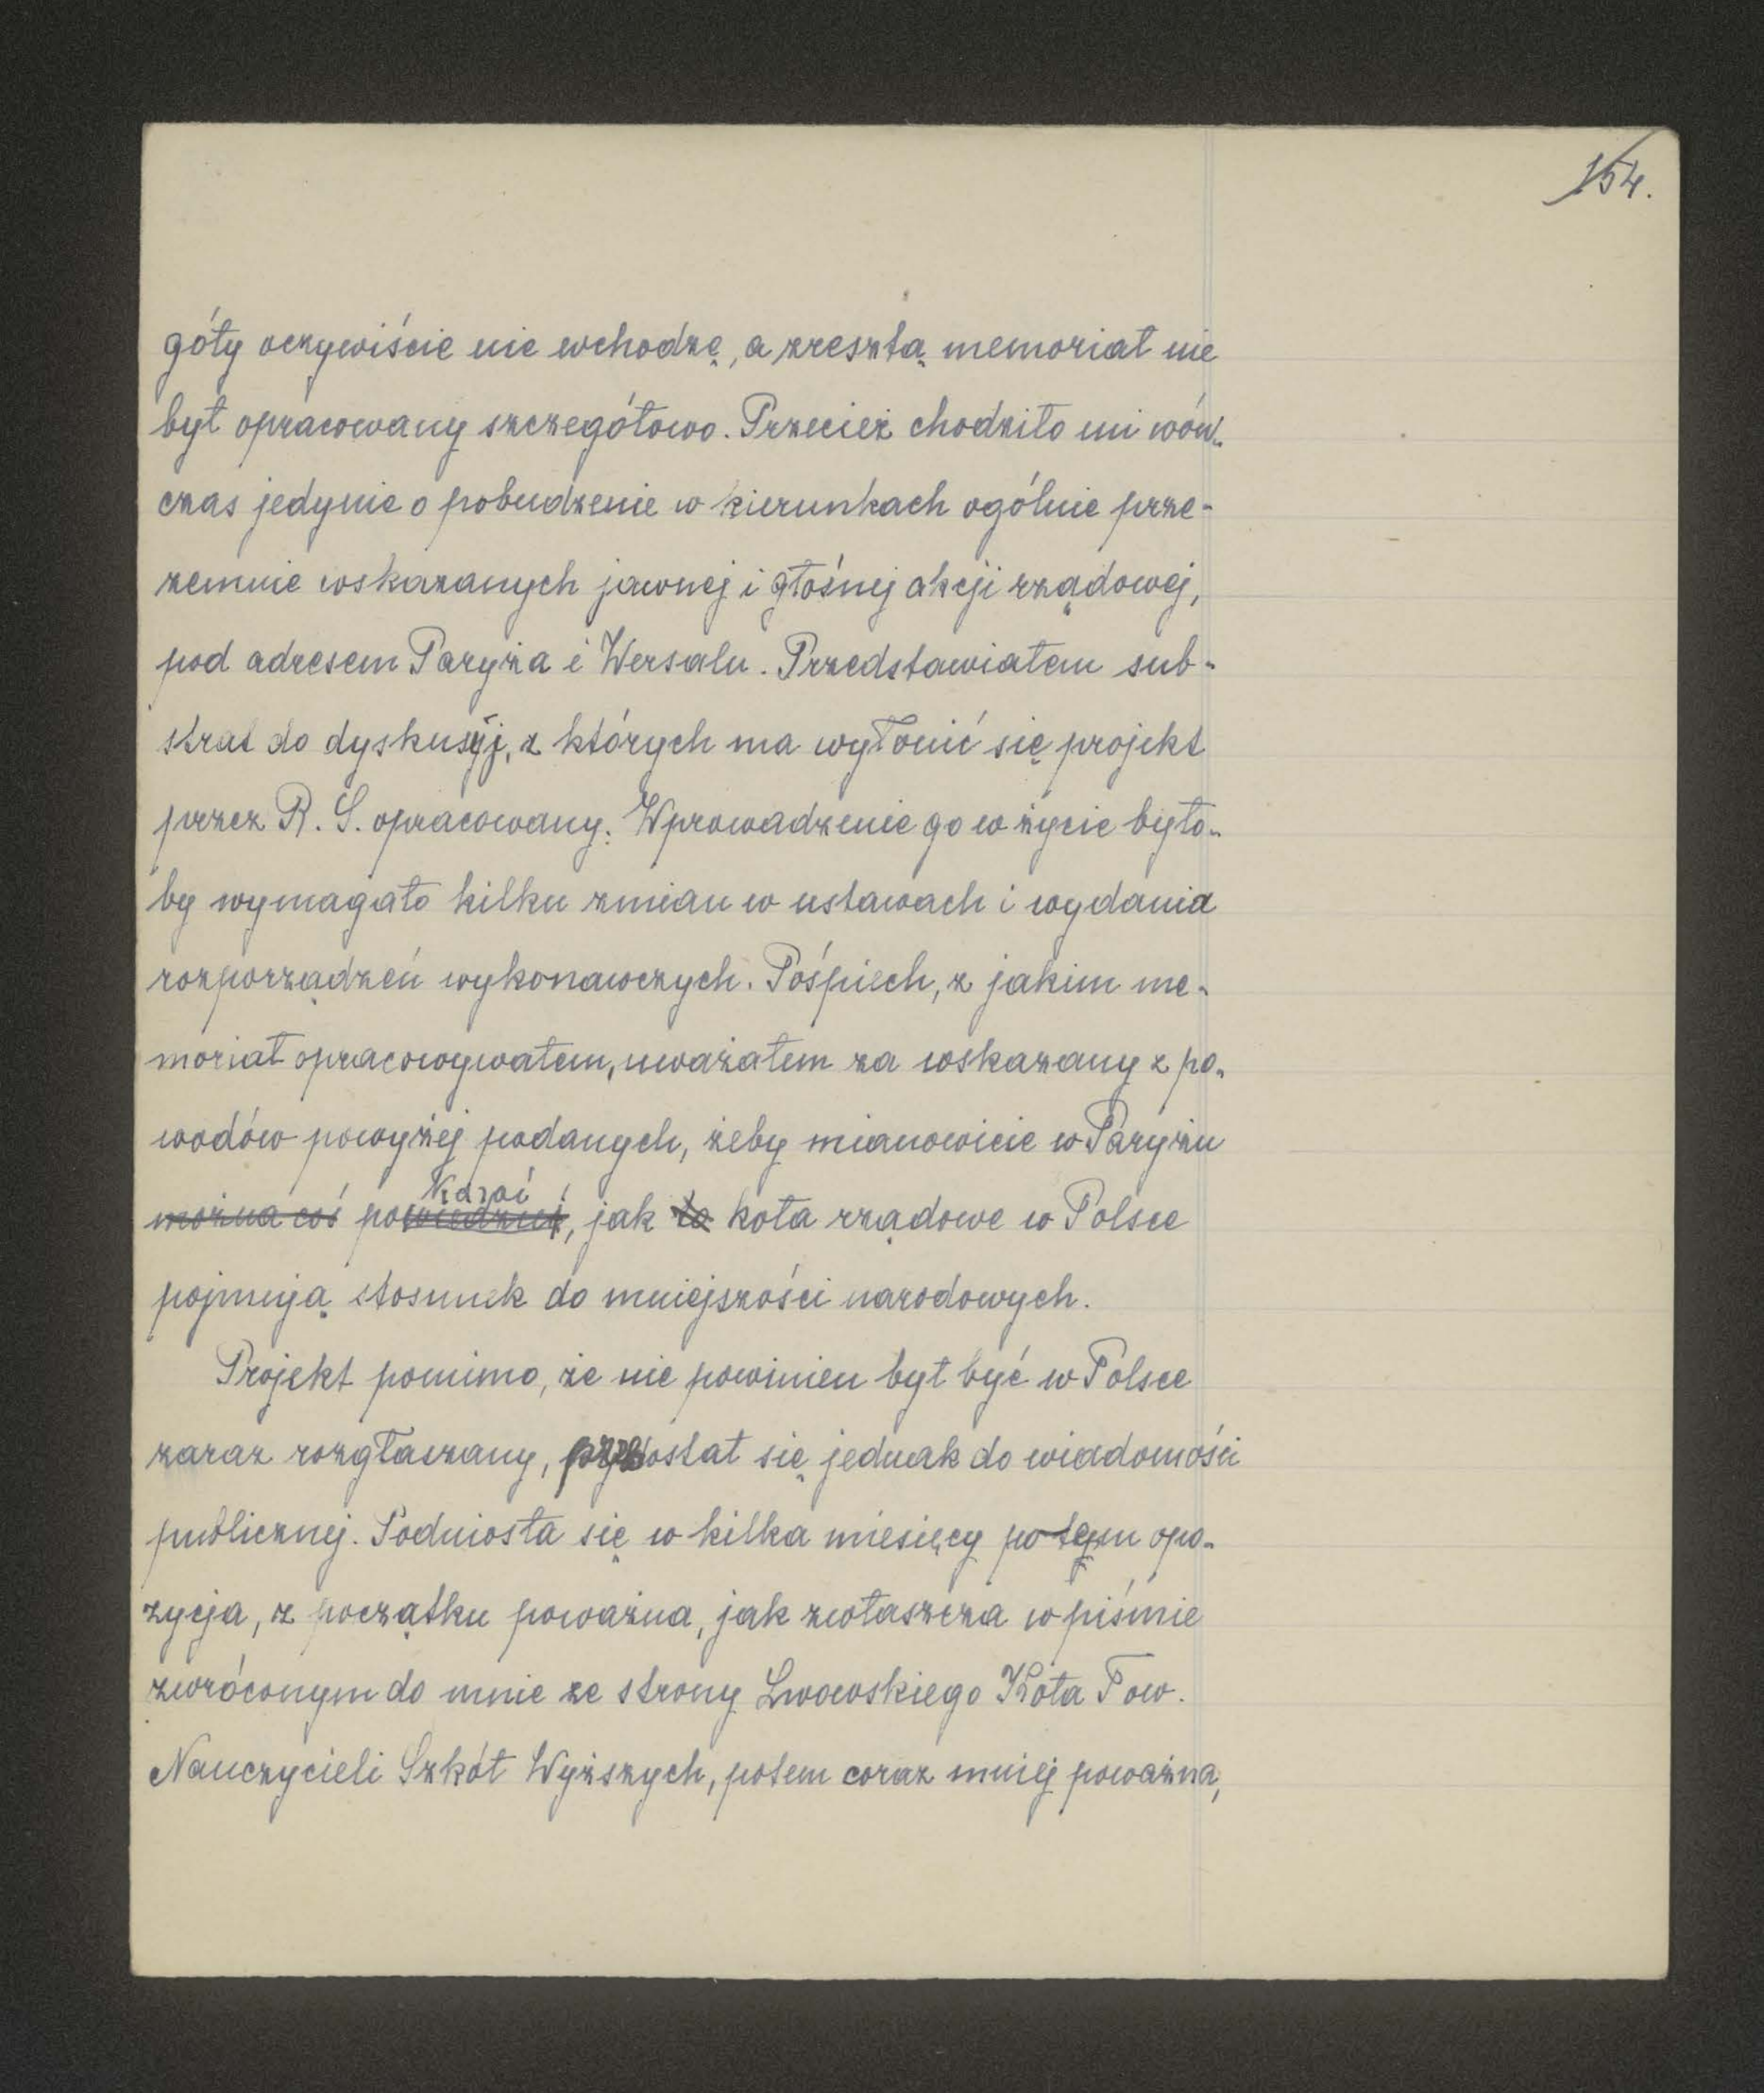 154.
góły oczywiście nie wchodzę, a zresztą memoriał nie
był opracowany szczegółowo. Przecież chodziło mi wów-
czas jedynie o pobudzenie w kierunkach ogólnie prze-
zemnie wskazanych jawnej i głośnej akcji rządowej,
pod adresem Paryża i Wersalu. Przedstawiałem sub-
strat do dyskusyj, z których ma wyłonić się projekt
przez R. S. opracowany. Wprowadzenie go w życie było-
by wymagało kilku zmian w ustawach i wydania
rozporządzeń wykonawczych. Pośpiech, z jakim me-
moriał opracowywałem, uważałem za wskazany z po-
wodów powyżej podanych, żeby mianowicie w Paryżu
kazać
można coś powiedzieć, jak to koła rządowe w Polsce
pojmują stosunek do mniejszości narodowych.
Projekt pomimo, że nie powinien był być w Polsce
zaraz rozgłaszany, dostał się jednak do wiadomości
publicznej. Podniosła się w kilka miesięcy po tym opo-
zycja, z początku poważna, jak zwłaszcza w piśmie
zwróconym do mnie ze strony Lwowskiego Koła Tow.
Nauczycieli Szkół Wyższych, potem coraz mniej poważna,